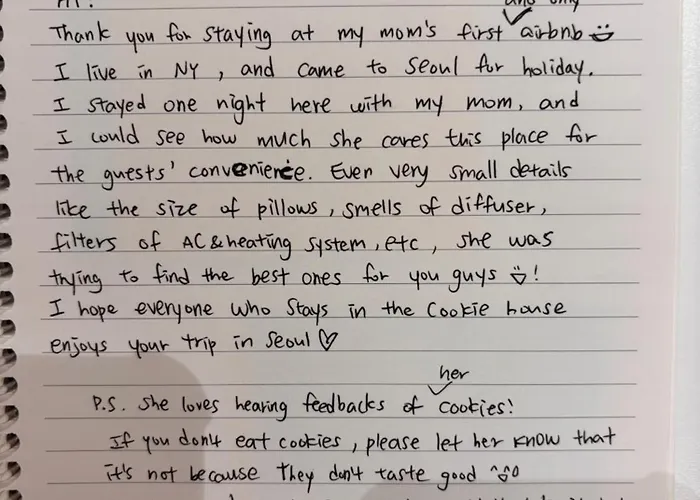 Hi!
and only
Thank you for staying at my mom's first airbnb
I live in NY, and came to Seoul for holiday.
I stayed one night here with my mom, and
I could see how much she cares this place for
the guests' convenience. Even very small details
like the size of pillows, smells of diffuser,
filters of AC & heating system, etc, she was
trying to find the best ones for you guys !
I hope everyone who stays in the Cookie house
enjoys your trip in Seoul ♡
her
P.S. She loves hearing feedbacks of cookies!
If you don't eat cookies, please let her know that
it's not because they don't taste good ^^